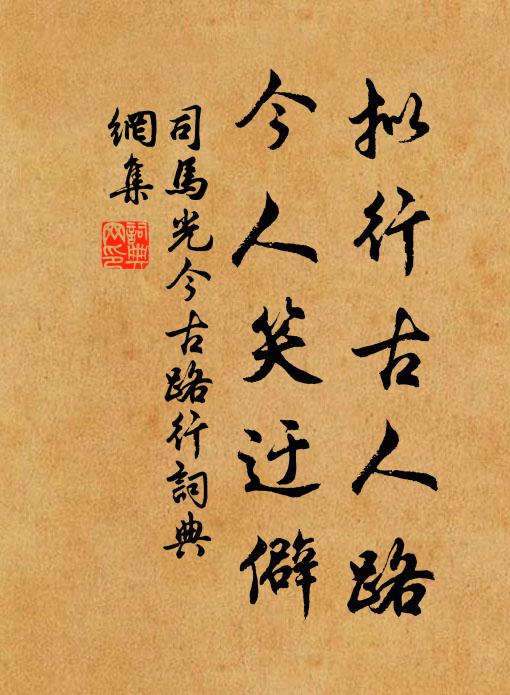 拟行古人路
今人笑迂僻
司馬光今古路行詞典
網集
詞典
网印